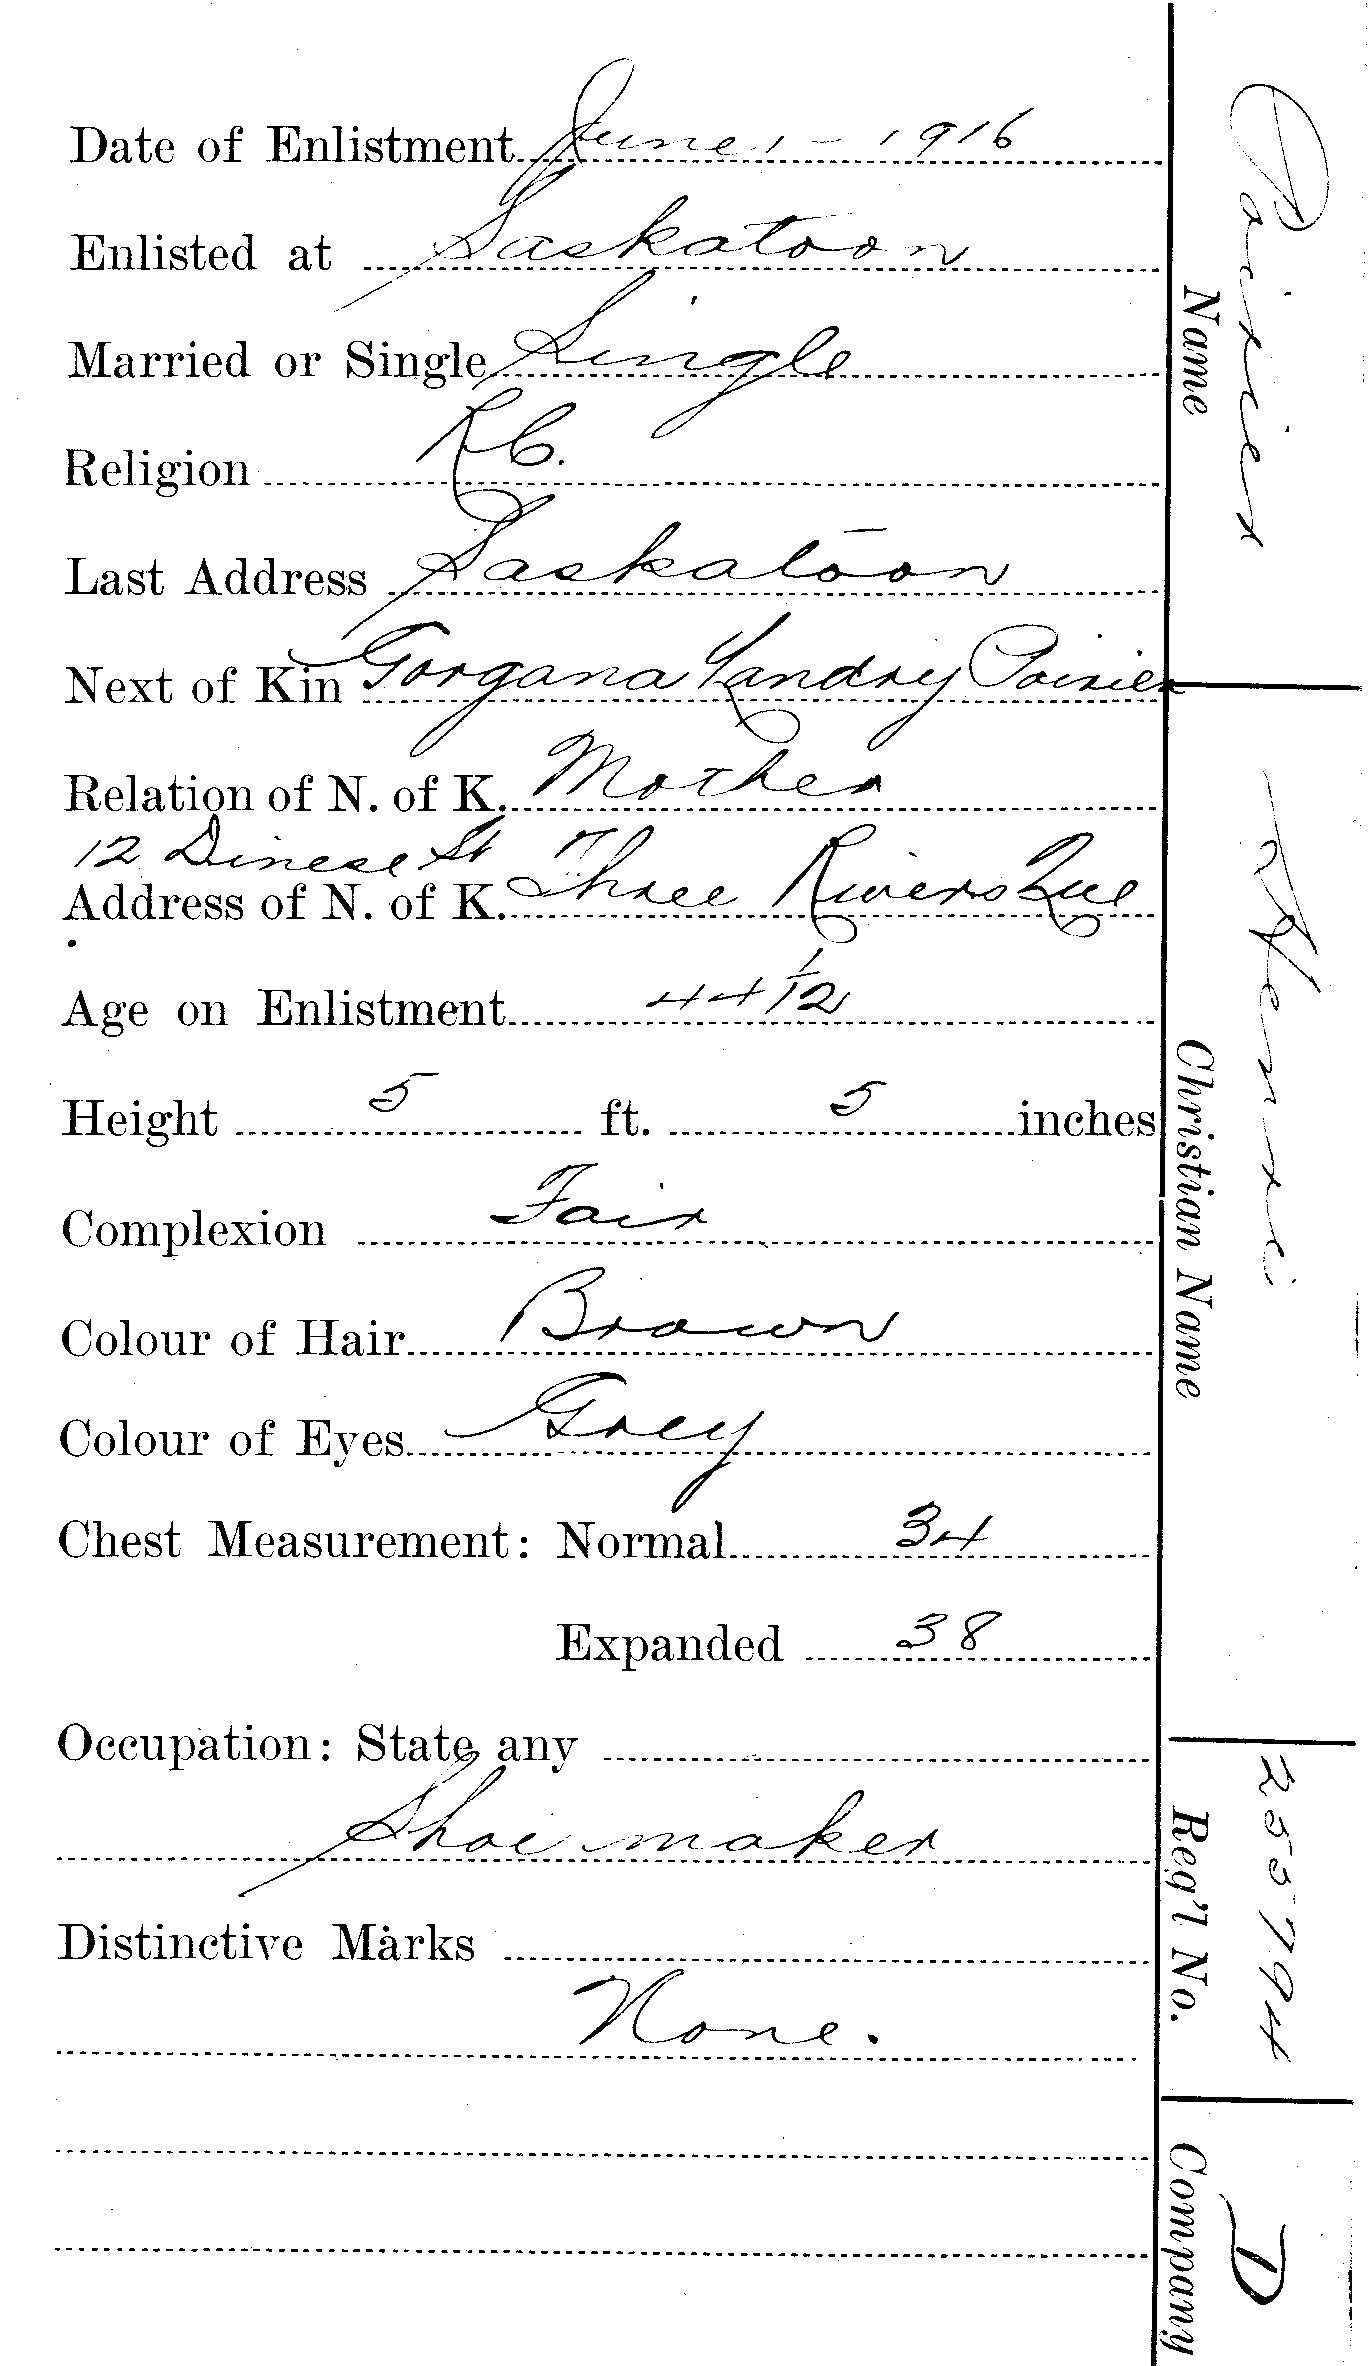 Date of Enlistment June 1 - 1916
Enlisted at Saskatoon
Married or Single Single
Religion R C.
Last Address Saskatoon
Next of Kin Gorgana Landry Poirier
Relation of N. of K. Mother
12 Dinese St
Address of N. of K. Three Rivers Que
Age on Enlistment 44 1/12
Height 5 ft. 5 inches
Complexion Fair
Colour of Hair Brown
Colour of Eyes Grey
Chest Measurement: Normal 34
Expanded 38
Occupation: State any
Shoe maker
Distinctive Marks
None.
Name Poirier
Christian Name Henri
Reg'l No. 255794
Company D